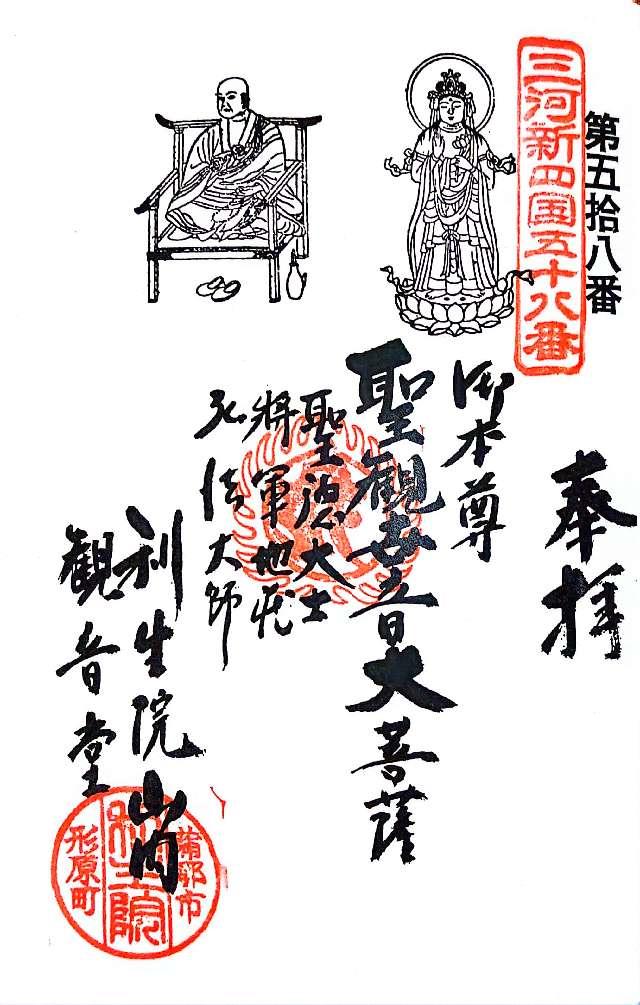 第五拾八番
三河新四国五十八番
奉拝
御本尊
聖観世音大菩薩
聖徳大士
将軍地蔵
弘法大師
利生院山内
観音堂
蒲郡市
利生院
形原町